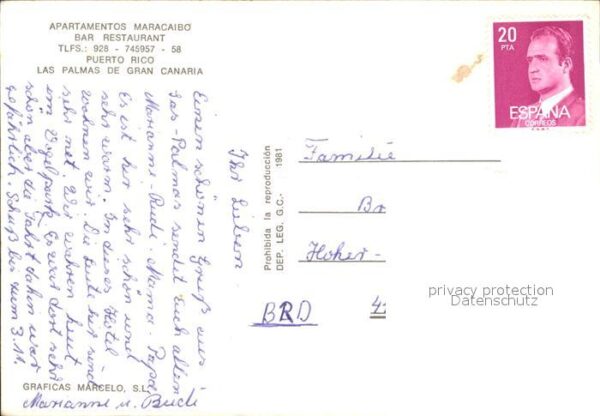 APARTAMENTOS MARACAIBO
BAR RESTAURANT
TLFS.: 928 - 745957 - 58
PUERTO RICO
LAS PALMAS DE GRAN CANARIA
20
PTA
ESPAÑA
CORREOS
Ihr Lieben.
Einen schönen Gruß aus
Las-Palmas sendet Euch allen
Marianne-Rudi. Mama-Papa
Es ist hier sehr schön und
sehr warm. In dieses Hotel
wohnen wir. Die Leute hier sind
sehr nett. Wir waren heut
im Vogelpark. Es war dort sehr
schön aber die Fahrt dahin war
gefährlich. Schuß bis zum 3.11.
Marianne u. Rudi
GRAFICAS MARCELO, S.L.
Prohibida la reproducción
DEP. LEG. G.C.- 1981
Familie
Br
Hoher-
BRD 4
privacy protection
Datenschutz